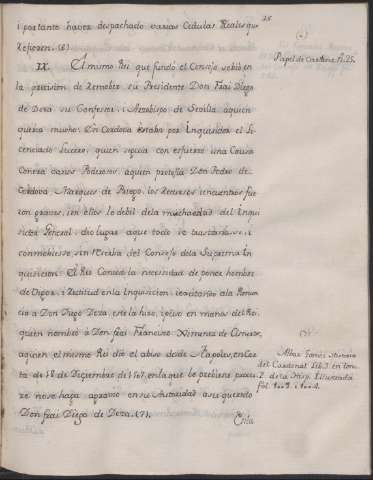 25
i portante haver despachado varias Cedulas Reales que
refieren. (6)
(6)
Papel de Cartas n. 25.
IX. El mismo Rei que fundó el Consejo se vió en
la precision de remover su Presidente Don Frai Diego
de Deza su Confesor, i Arzobispo de Sevilla, a quien
queria mucho. En Cordova estaba por Inquisidor el Li-
cenciado Lucero, quien seguia con esfuerzo una Causa
Contra varios Poderosos, a quien protegia Don Pedro de
Cordova Marques de Priego. los Recursos i encuentros fue-
ron graves, i en ellos lo debil de la mucha edad del Inqui
sidor General, dió lugar a que todo se trastornase, i
conmobiesse, sin escalva del Consejo de la Suprema In
quisicion. El Rei Conoció la necesidad de poner hombre
de Vigor, i Rectitud en la Inquisicion: i excitando a la Renun
cia a Don Diego Deza, este la hizo, i puso en manos del Rei,
quien nombró a Don frai Francisco Ximenez de Cisneros,
a quien el mismo Rei dió el abiso desde Napoles, en Car
ta de 18 de Diciembre de 1507. en la que le prebiene procu-
re no se haga agravio en su Autoridad a su querido
Don frai Diego de Deza. (7).
(7)
Albar Gomez Historia
del Cardenal Lib. 3. en tom.
2. de la Hisp. Illustrada
fol. 1003. i 1004.